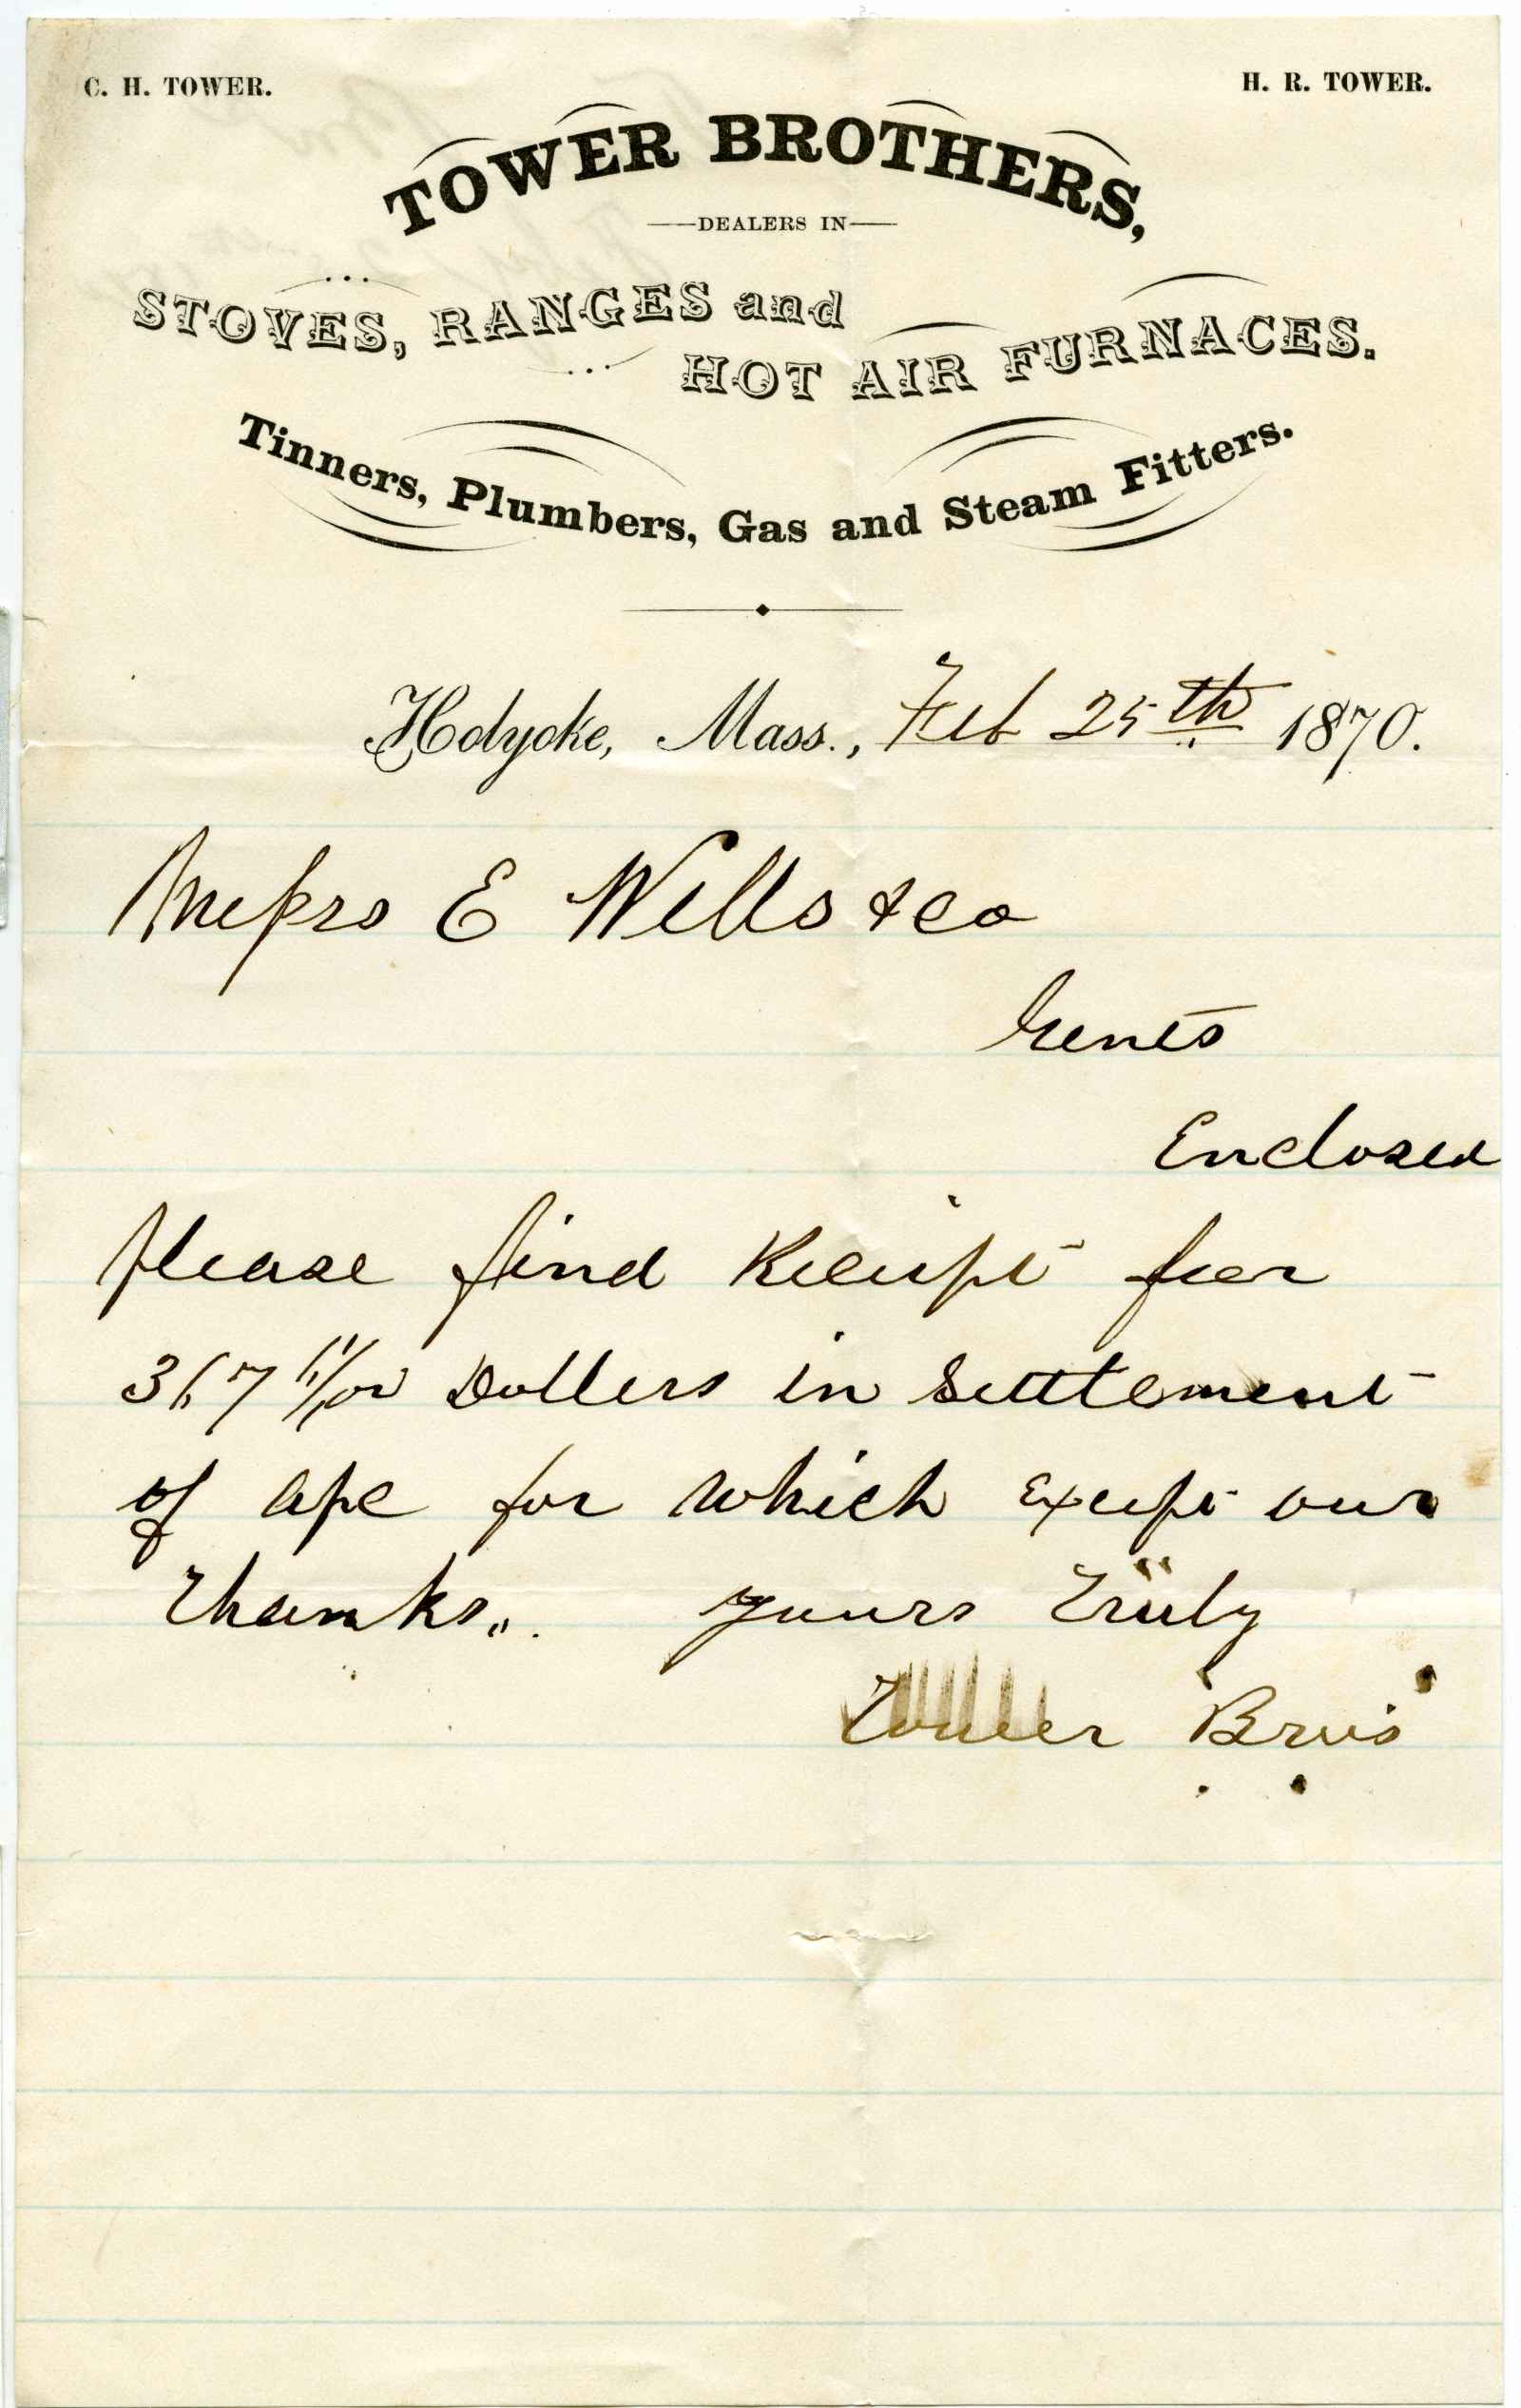 C. H. TOWER.
H. R. TOWER.
TOWER BROTHERS,
DEALERS IN
STOVES, RANGES and
HOT AIR FURNACES.
Tinners, Plumbers, Gas and Steam Fitters.
Holyoke, Mass., Feb 25th 1870.
Messrs E Wells & Co
Gents
Enclosed
please find Receipt for
Dollers in Settlement
of apc for which Except our
Thanks,,. Yours Truly
Tower Bro's